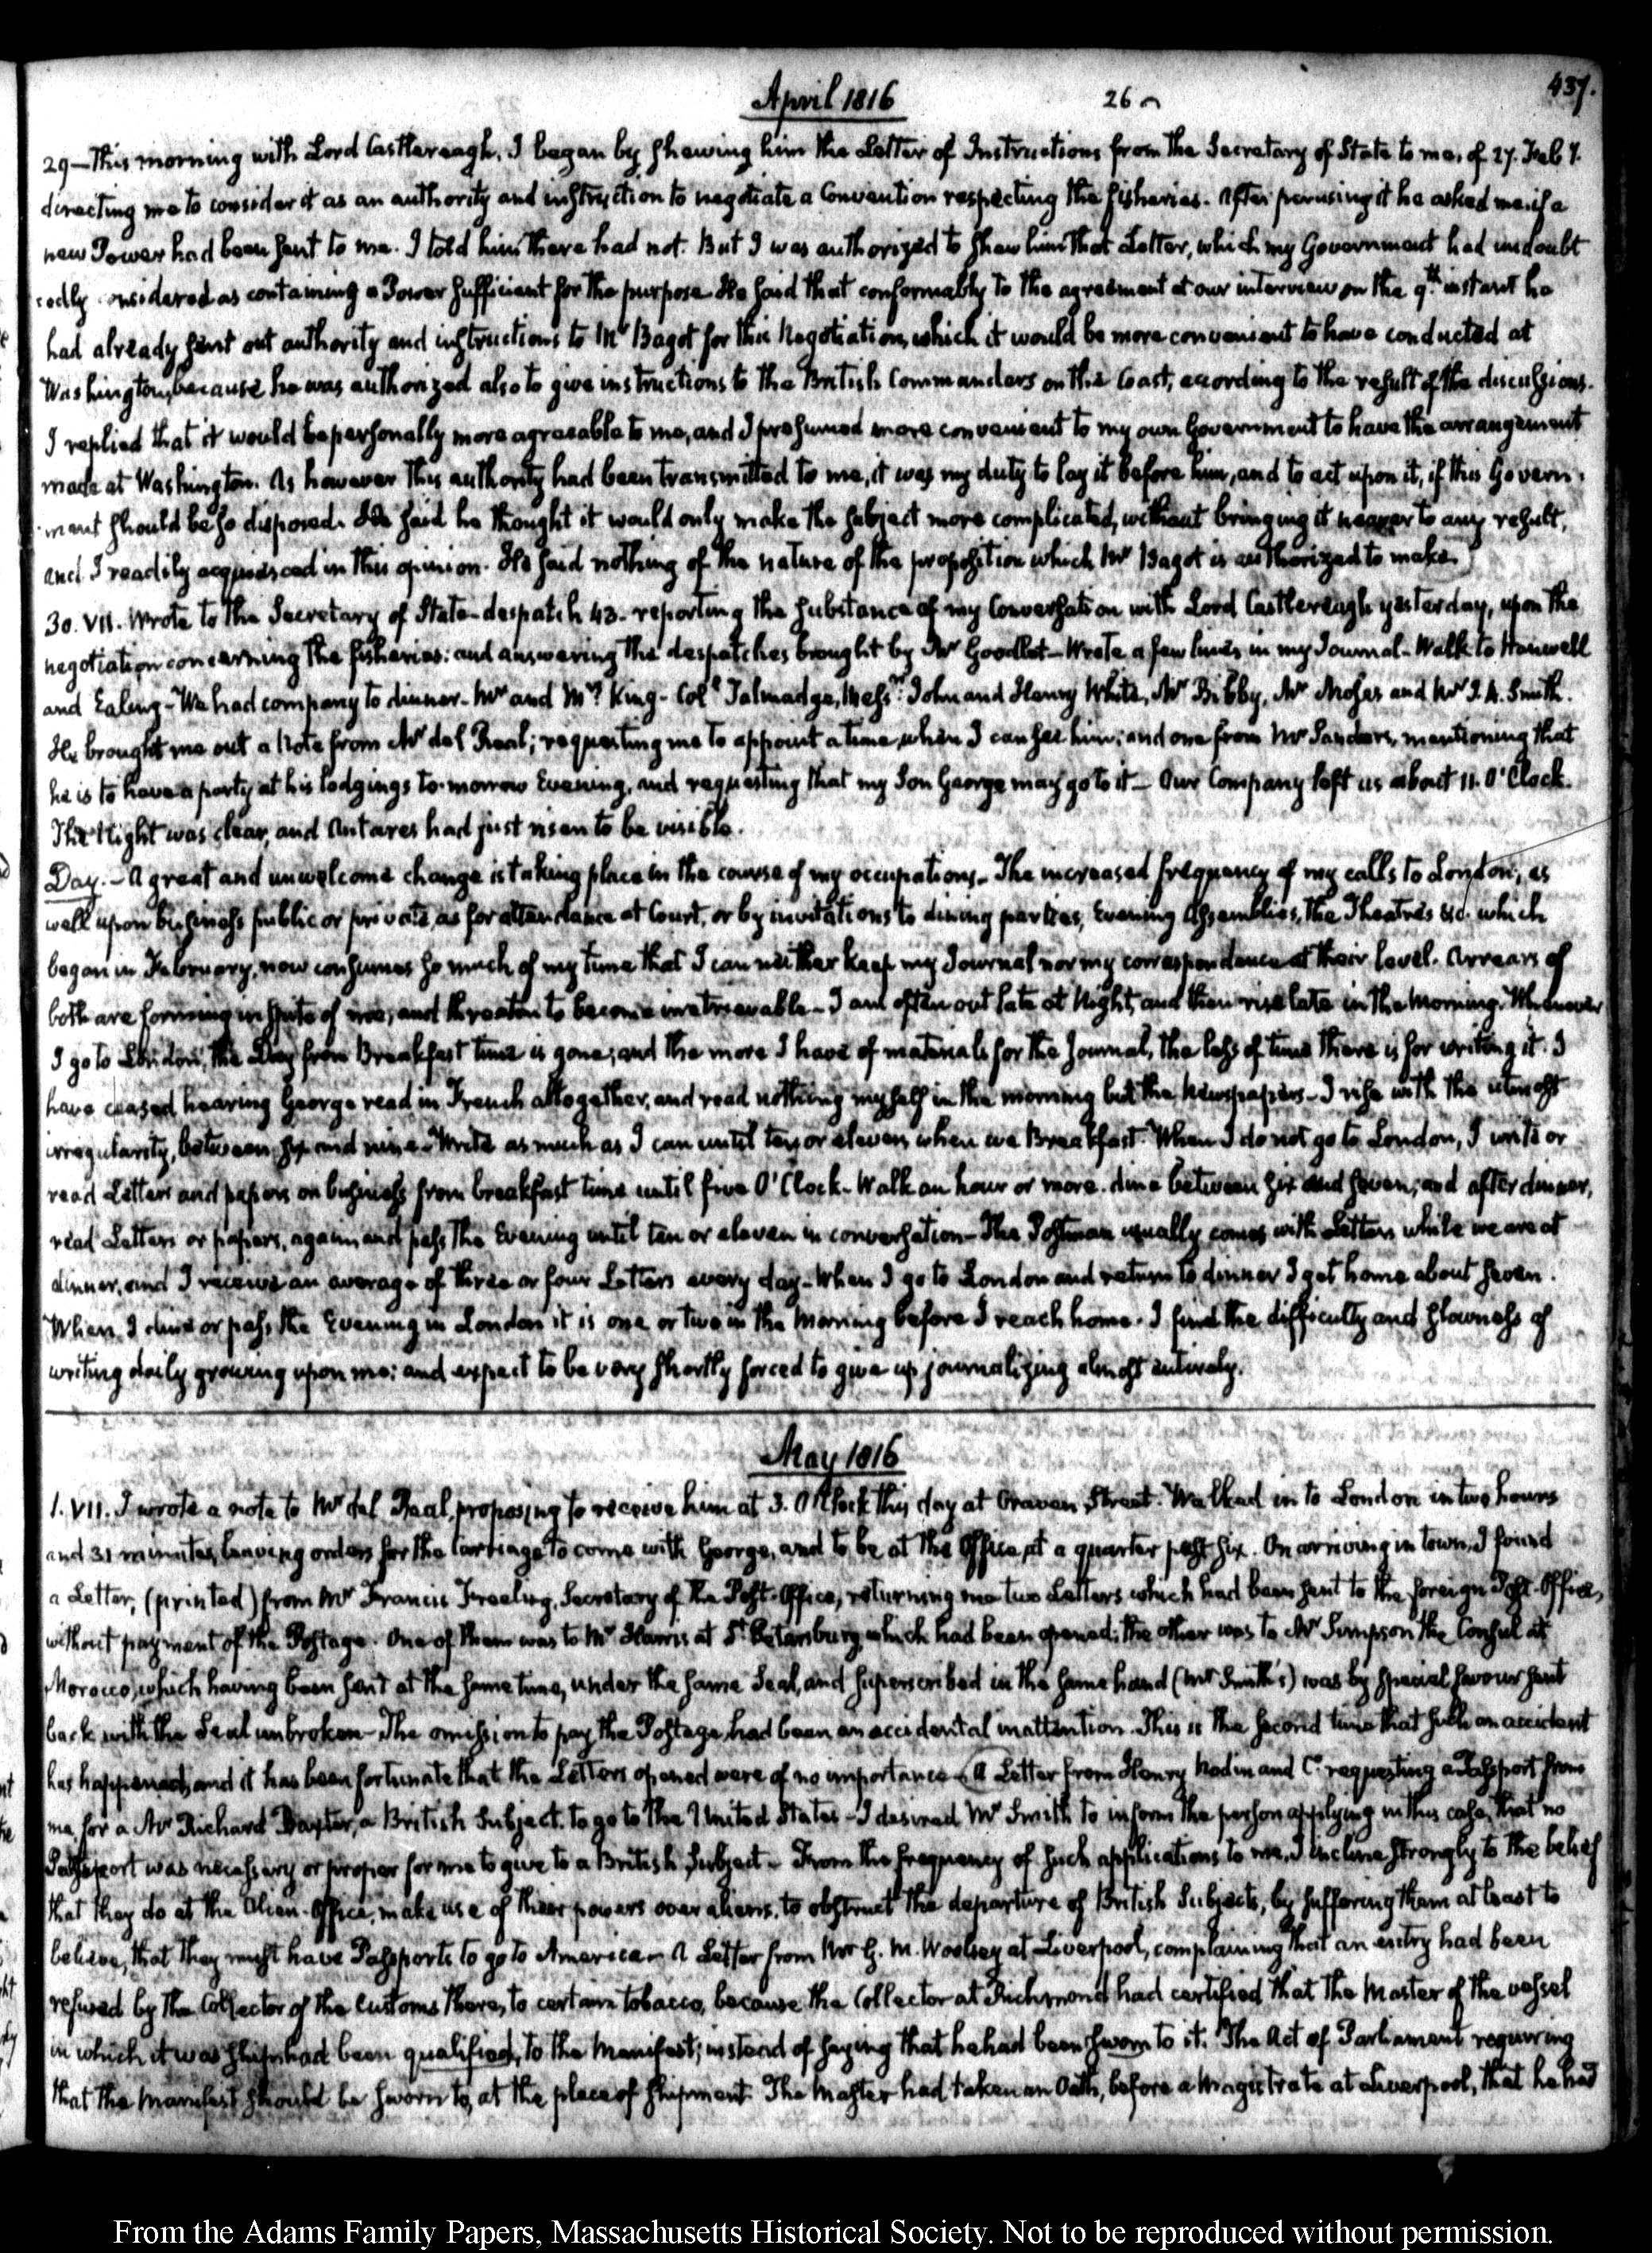 437.
April 1816 26
29—This morning with Lord Castlereagh. I began by shewing him the Letter of Instructions from the Secretary of State to me, of 27. Feby.
directing me to consider it as an authority and instruction to negotiate a Convention respecting the fisheries. After perusing it he asked me if a
new Power had been sent to me. I told him there had not. But I was authorized to shew him that Letter, which my Government had undoubt
edly considered as containing a Power sufficient for the purpose. He said that conformably to the agreement at our interview on the 9th instant he
had already sent out authority and instructions to Mr Bagot for this Negotiation, which it would be more convenient to have conducted at
Washington, because he was authorized also to give instructions to the British Commanders on the Coast, according to the result of the discussions.
I replied that it would be personally more agreeable to me, and I presumed more convenient to my own Government to have the arrangement
made at Washington. As however this authority had been transmitted to me, it was my duty to lay it before him, and to act upon it, if this Govern-
ment should be so disposed. He said he thought it would only make the subject more complicated, without bringing it nearer to any result,
and I readily acquiesced in this opinion. He said nothing of the nature of the proposition which Mr Bagot is authorized to make.
30. VII. Wrote to the Secretary of State—despatch 43. reporting the substance of my Conversation with Lord Castlereagh yesterday, upon the
negotiation concerning the fisheries: and answering the despatches brought by Mr Goodlet—Wrote a few lines in my Journal—Walk to Hanwell
and Ealing—We had company to dinner—Mr and Mrs King—Coll Talmadge, Messrs John and Henry White, Mr Bibby, Mr Moses and Mr J. A. Smith.
He brought me out a Note from Mr del Real; requesting me to appoint a time when I can see him; and one from Mr Sanders, mentioning that
he is to have a party at his lodgings to-morrow Evening, and requesting that my Son George may go to it—Our Company left us about 11. O'Clock.
The Night was clear, and Antares had just risen to be visible.
Day.—A great and unwelcome change is taking place in the course of my occupations—The increased frequency of my calls to London, as
well upon business public or private, as for attendance at Court, or by invitations to dining parties, Evening Assemblies, the Theatres &c. which
began in February, now consumes so much of my time that I can neither keep my Journal nor my correspondence at their level. Arrears of
both are forming in spite of me, and threaten to become irretrievable—I am often out late at Night, and then rise late in the Morning. Whenever
I go to London, the Day from Breakfast time is gone; and the more I have of materials for the Journal, the less of time there is for writing it. I
have ceased hearing George read in French altogether, and read nothing myself in the morning but the Newspapers—I rise with the utmost
irregularity, between six and nine—Write as much as I can until ten or eleven when we Breakfast. When I do not go to London, I write or
read Letters and papers on business from breakfast time until five O'Clock—Walk an hour or more. dine between six and seven; and after dinner,
read Letters or papers, again and pass the Evening until ten or eleven in conversation—The Postman usually comes with Letters while we are at
dinner, and I receive an average of three or four Letters every day—When I go to London and return to dinner I get home about seven.
When I dine or pass the Evening in London it is one or two in the Morning before I reach home. I find the difficulty and slowness of
writing daily growing upon me: and expect to be very shortly forced to give up journalizing almost entirely.
May 1816
1. VII. I wrote a note to Mr del Real, proposing to receive him at 3. O'Clock this day at Craven Street. Walked in to London in two hours
and 31 minutes, leaving orders for the Carriage to come with George, and to be at the Office, at a quarter past six. On arriving in town, I found
a Letter, (printed) from Mr Francis Freeling, Secretary of the Post-Office, returning me two Letters which had been sent to the foreign Post-Office,
without payment of the Postage. One of them was to Mr Harris at St Petersburg, which had been opened; the other was to Mr Simpson the Consul at
Morocco, which having been sent at the same time, under the same Seal, and superscribed in the same hand (Mr Smith's) was by special favour sent
back with the Seal unbroken—The omission to pay the Postage had been an accidental inattention. This is the second time that such an accident
has happened, and it has been fortunate that the Letters opened were of no importance—A Letter from Henry Nadin and Co. requesting a Passport from
me for a Mr Richard Baxter, a British Subject. to go to the United States—I desired Mr Smith to inform the person applying in this case, that no
Passport was necessary or proper for me to give to a British Subject—From the frequency of such applications to me, I incline strongly to the belief
that they do at the Alien-Office, make use of their powers over aliens, to obstruct the departure of British Subjects, by suffering them at least to
believe, that they must have Passports to go to America—A Letter from Mr G. M. Woolsey at Liverpool, complaining that an entry had been
refused by the Collector of the Customs there, to certain tobacco, because the Collector at Richmond had certified that the Master of the vessel
in which it was shipped had been qualified, to the Manifest; instead of saying that he had been sworn to it. The Act of Parliament requiring
that the Manifest should be sworn to, at the place of shipment. The Master had taken an Oath, before a Magistrate at Liverpool, that he had
From the Adams Family Papers, Massachusetts Historical Society. Not to be reproduced without permission.